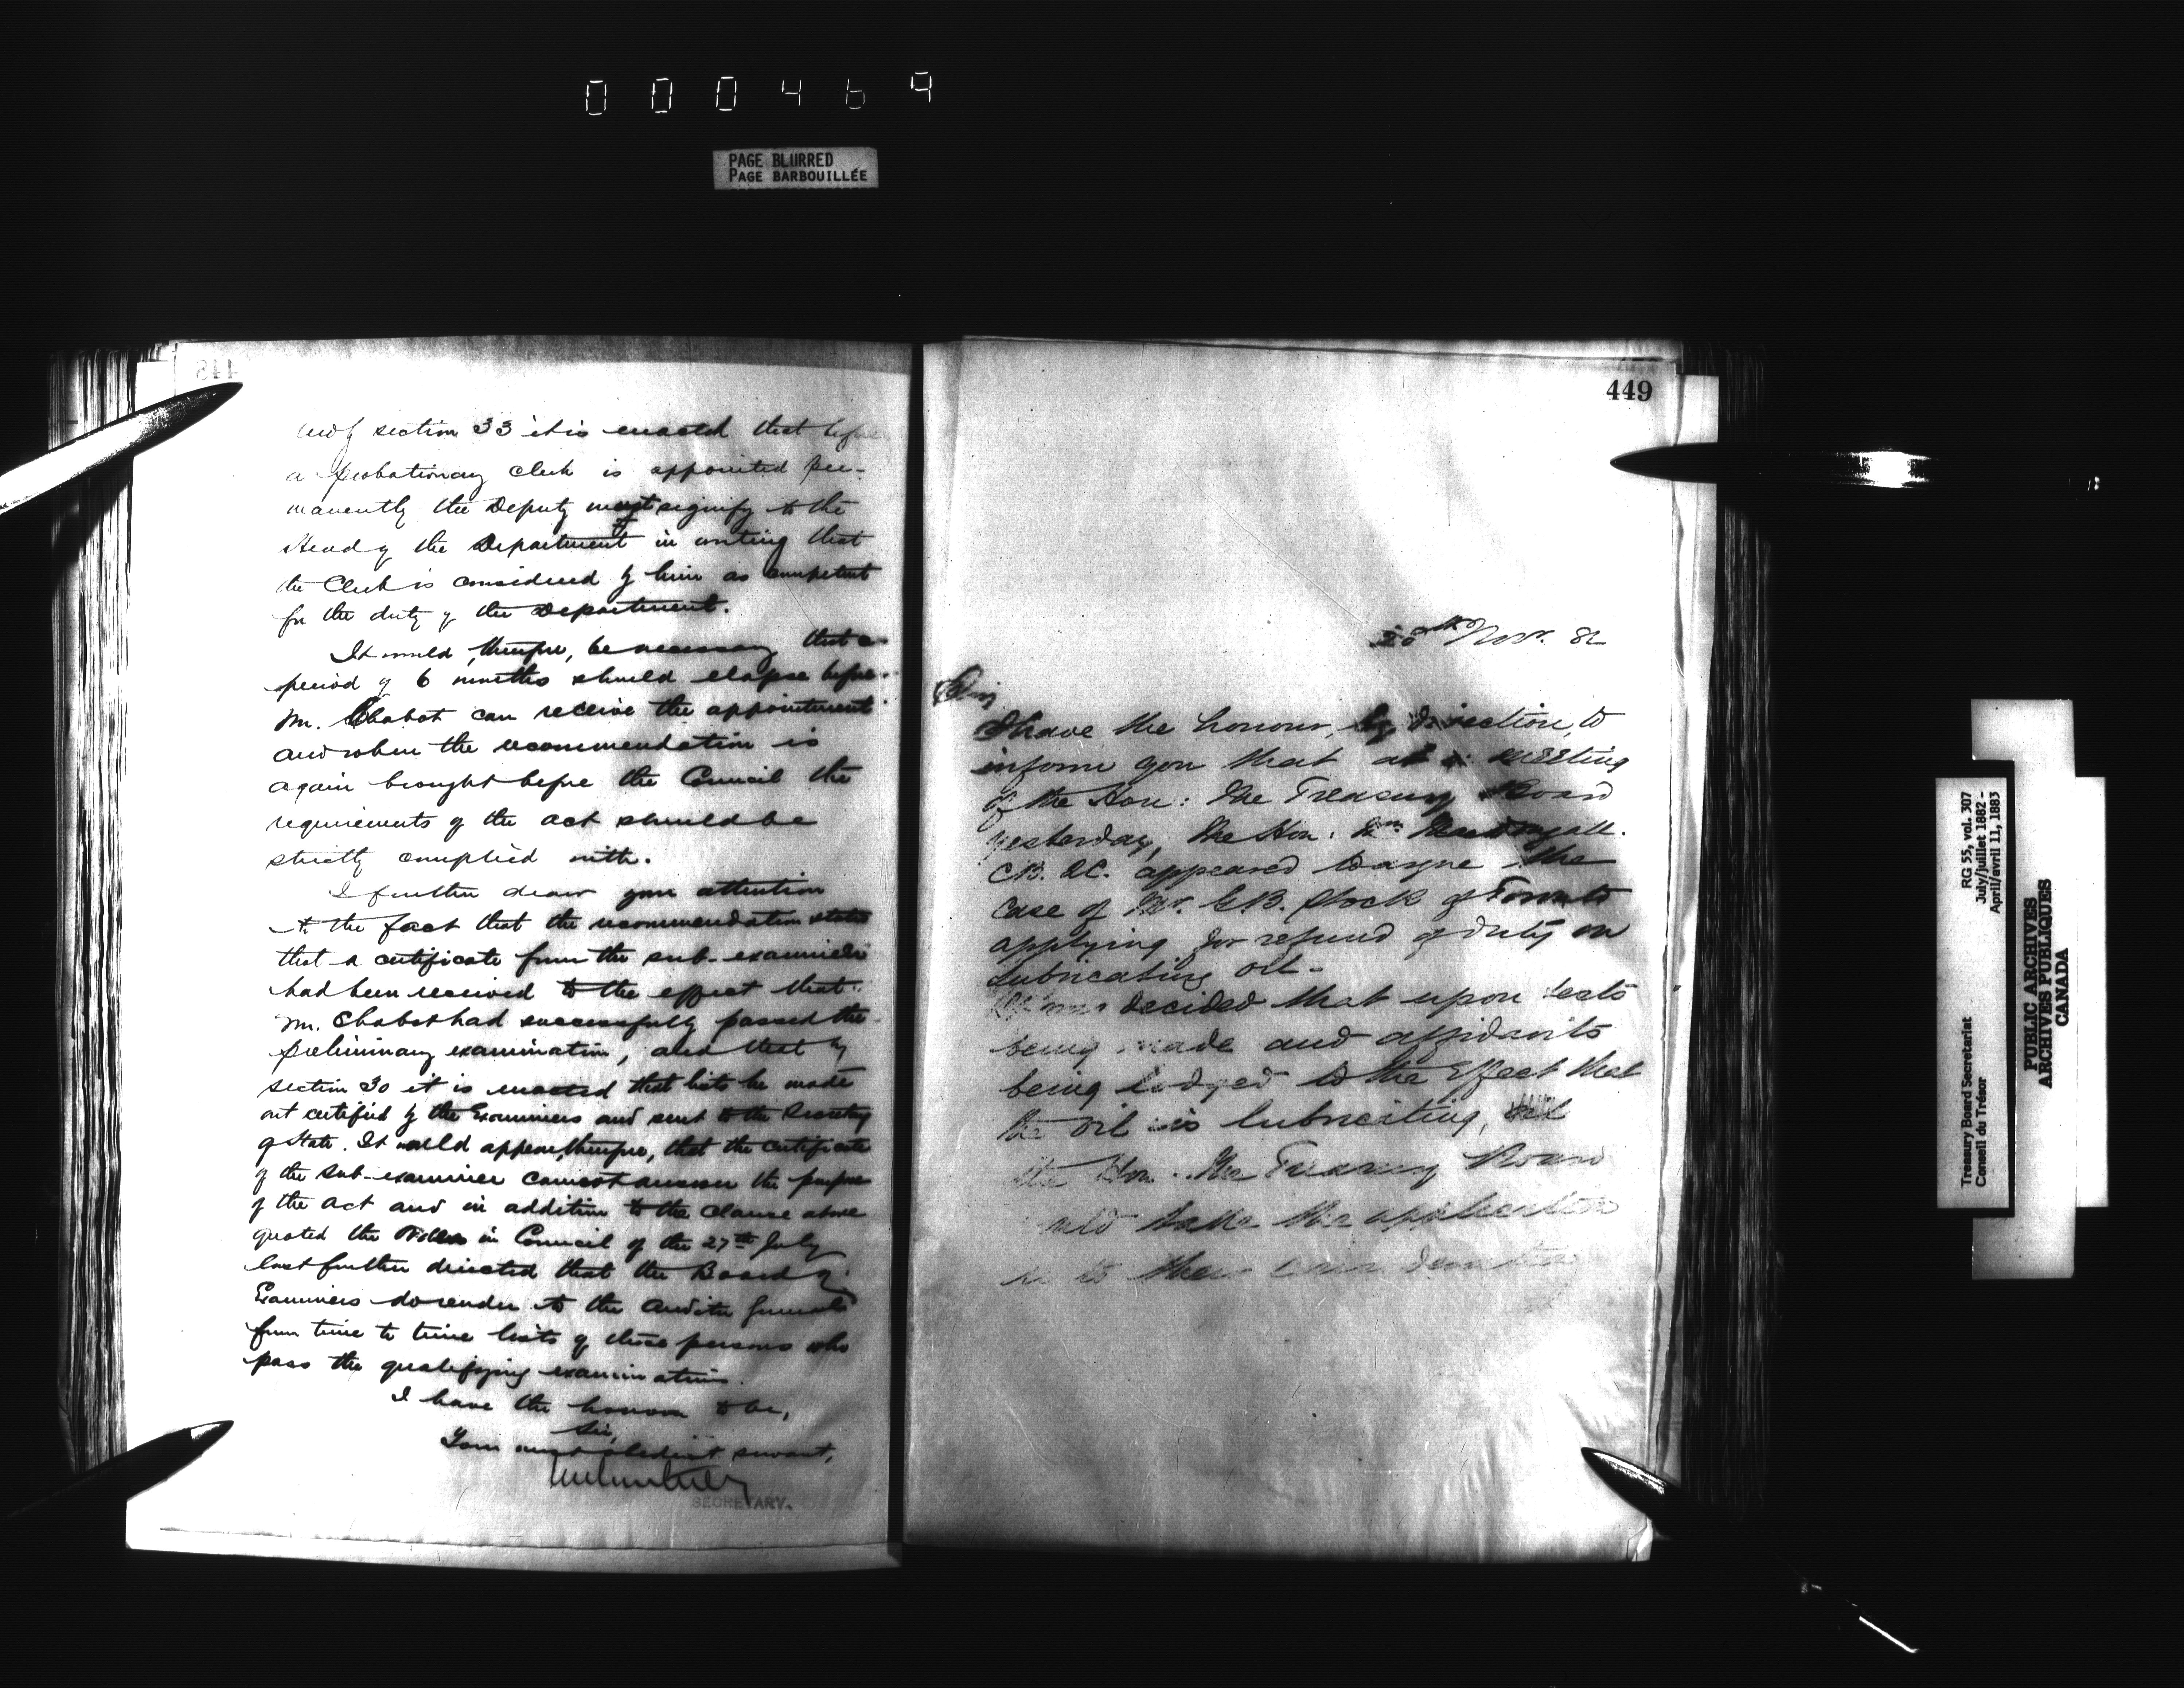 000469
PAGE BLURRED
PAGE BARBOUILLÉE
448
and of section 33 it is enacted that before
a probationary clerk is appointed per-
manently the Deputy must signify to the
Head of the Department in writing that
the Clerk is considered by him as competent
for the duty of the Department.
It would, therefore, be necessary that a
period of 6 months should elapse before
Mr. Chabot can receive the appointment
and when the recommendation is
again brought before the Council the
requirements of the act should be
strictly complied with.
I further draw your attention
to the fact that the recommendation states
that a certificate from the sub-examiner
had been received to the effect that
Mr. Chabot had successfully passed the
preliminary examination, and that by
section 30 it is enacted that lists be made
out certified by the Examiners and sent to the Secretary
of State. It would appear, therefore, that the certificate
of the sub-examiner cannot answer the purpose
of the act and in addition to the clause above
quoted the in Council of the 27th July
last further directed that the Board of
Examiners do render to the Auditor General
from time to time lists of those persons who
pass the qualifying examination.
I have the honour to be,
Sir,
Your most obedient servant,
SECRETARY.
449
20th Nov. 82
Sir
I have the honour, by direction, to
inform you that at a meeting
of the Hon: the Treasury Board
yesterday, the Hon: Wm Macdougall.
C.B. Q.C. appeared to argue the
case of Mr. G.B. Stock of Toronto
applying for refund of duty on
lubricating oil-
It was decided that upon tests
being made and affidavits
being lodged to the effect that
the oil is lubricating,
the Hon. the Treasury Board
would take the application
in to their consideration
Treasury Board Secretariat RG 55, vol. 307
Conseil du Trésor July/juillet 1882 -
April/avril 11, 1883
PUBLIC ARCHIVES
ARCHIVES PUBLIQUES
CANADA